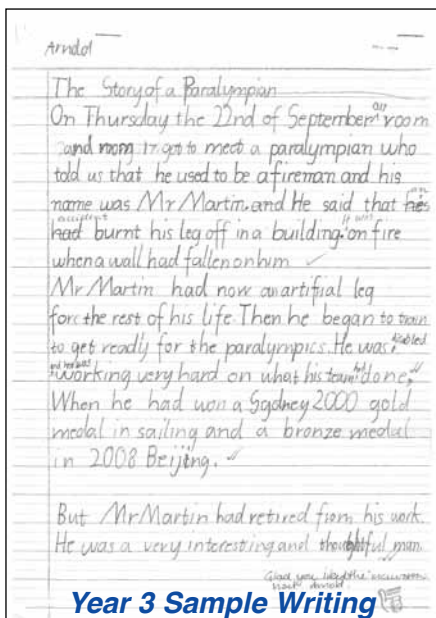 Arndol
The Story of a Paralympian
On Thursday the 22nd of September our room
and room 17 got to meet a paralympian who
told us that he used to be a fireman and his
name was Mr Martin. and He said that his an
accident it was
had burnt his leg off in a building. on fire
when a wall had fallen on him
Mr Martin had now an artifjial leg
for the rest of his life. Then he began to train
to get readly for the paralympics. He was
and he was
working very hard on what his team had done,
When he had won a Sydney 2000 gold
medal in sailing and a bronze medal
in 2008 Beijing.
But Mr Martin had retired from his work.
He was a very interesting and thoughtful man.
Glad you liked the
Year 3 Sample Writing